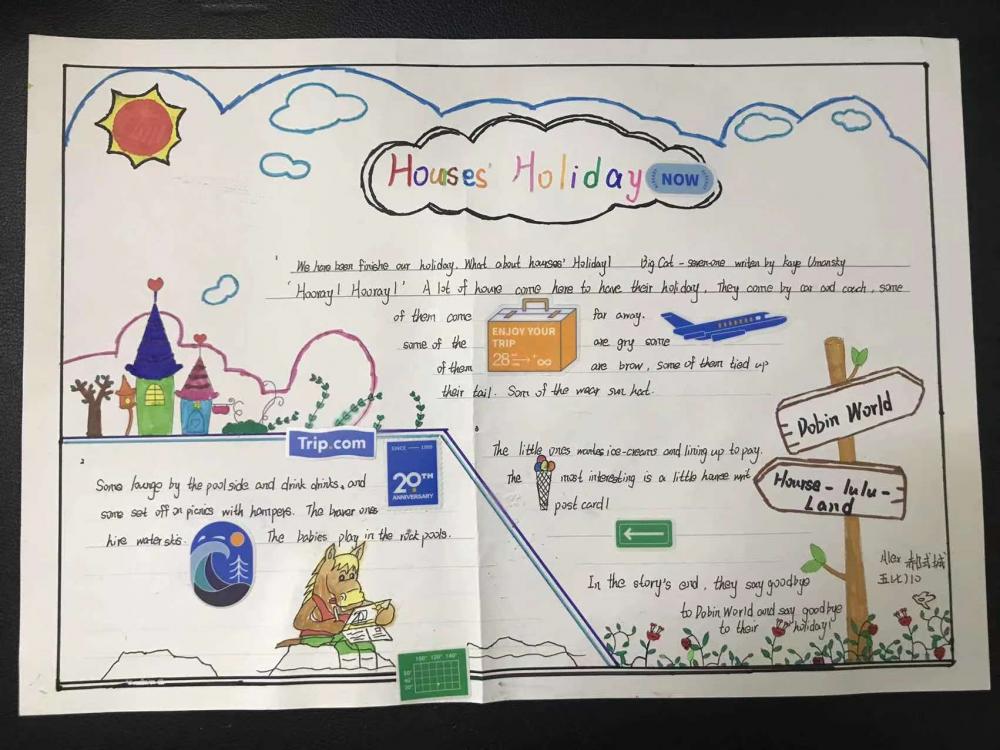 Houses' Holiday NOW
1
We have been finishe our holiday. What about houses' Holiday! Big Cat - seven-one writen by kaye Umansky
'Hooray! Hooray!' A lot of house come here to have their holiday. They come by car and coach, some
of them come far away.
ENJOY YOUR
TRIP
28 → ∞
some of the are gry some
of them are brow, some of them tied up
their tail. Som of the wear sun hat.
Dobin World
Hourse - lulu -
Land
Trip.com
SINCE 1999
20TH
ANNIVERSARY
2
Some lounge by the poolside and drink drinks, and
some set off on picnics with hampers. The braver ones
hire waterskis. The babies play in the rock pools.
3
The little ones wantes ice-creams and lining up to pay.
The most interesting is a little hource
post card!
In the story's end, they say goodbye
to Dobin World and say goodbye
to their holiday!
Alex
五(2)10
100° 120° 140°